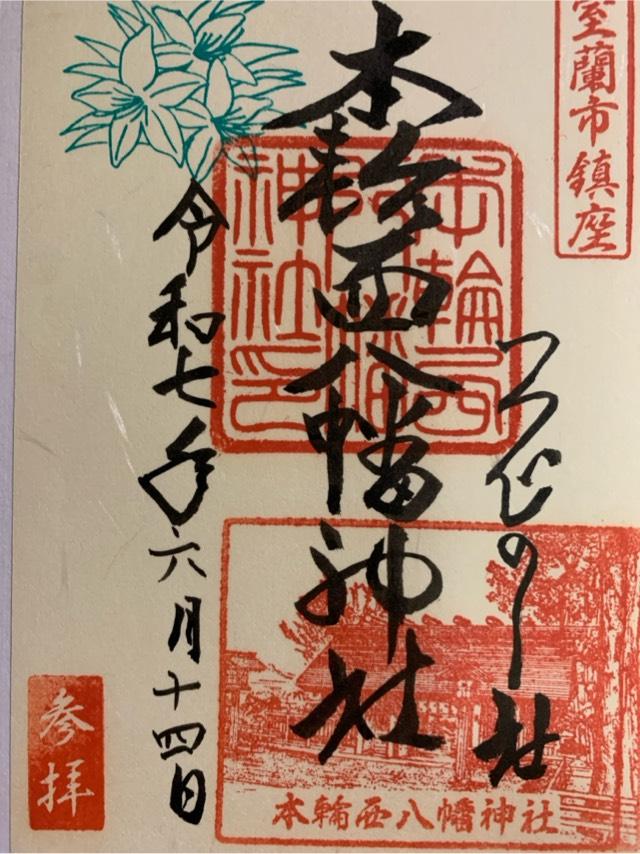 室蘭市鎮座
つつじの社
本輪西八幡神社
本輪西
八幡
神社印
令和七年六月十四日
参拝
本輪西八幡神社